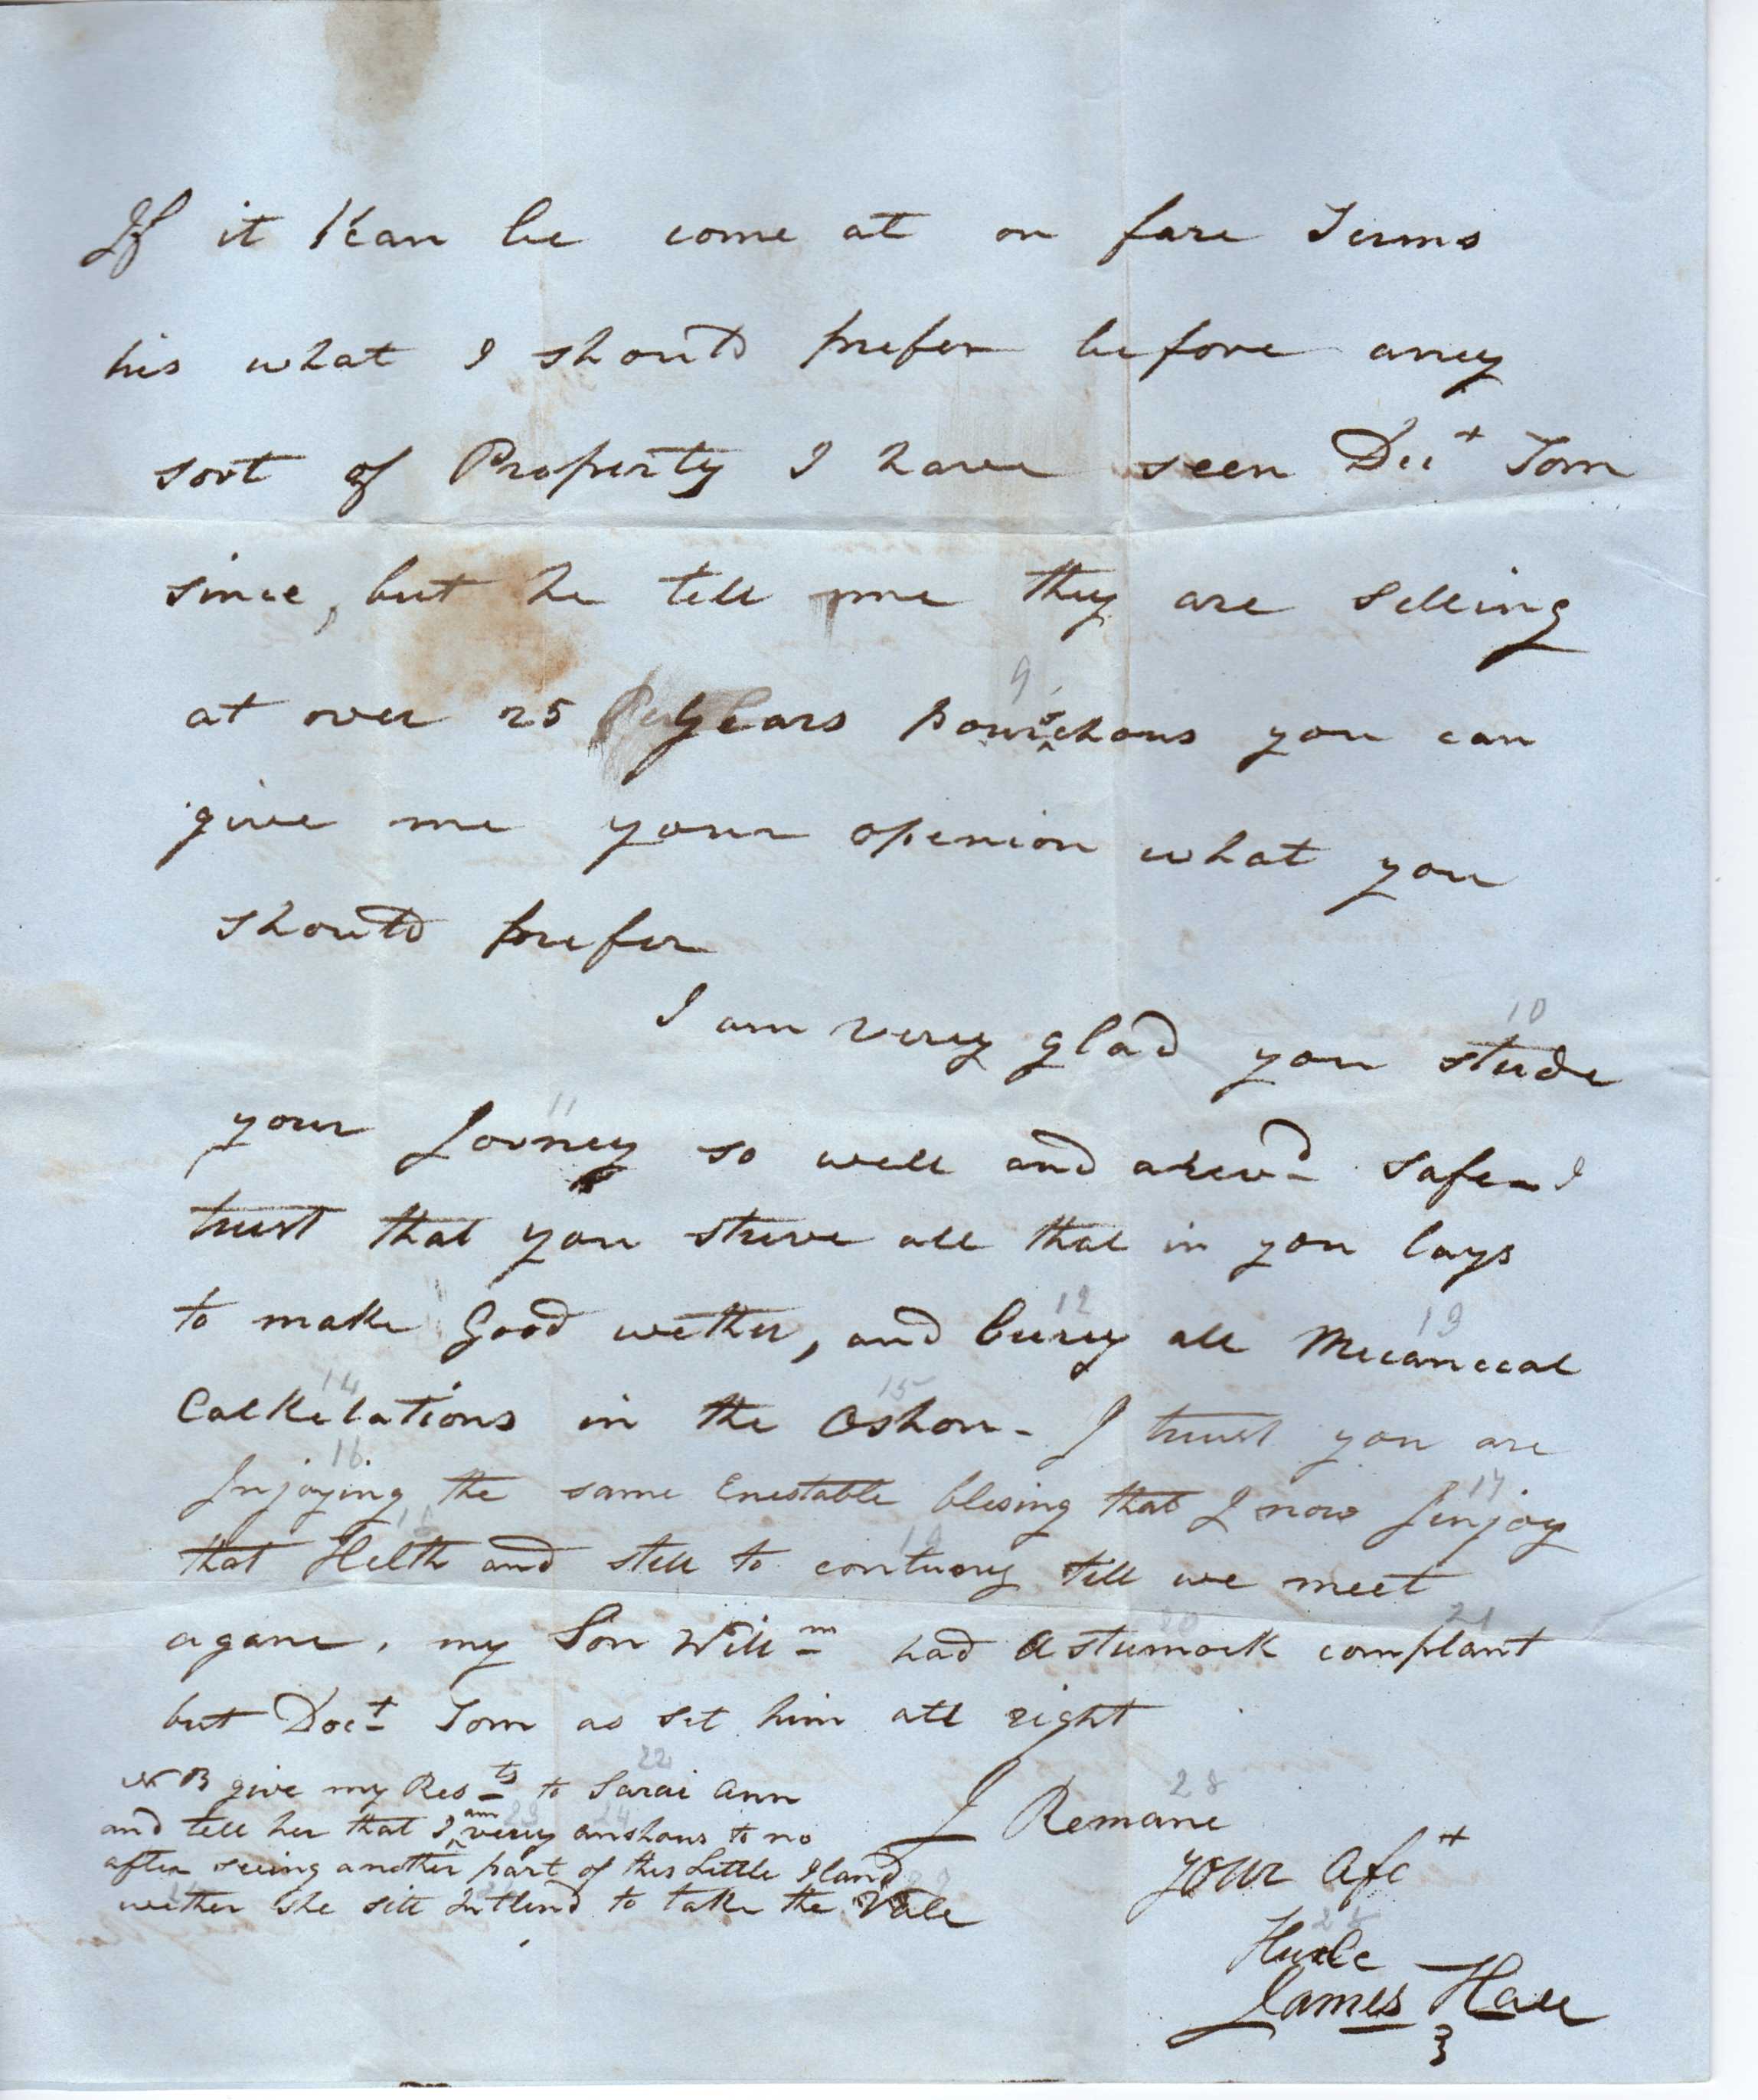 If it Kan be come at on fare Terms
his what I should prefer before aney
sort of Property I have seen Doct Tom
since, but he tell me they are selling
at over 25 years pourschous you can
give me your openion what you
should prefer
I am verey glad you stude
your Jorney so well and arivd safe - I
trust that you strive all that in you lays
to make good wether, and burey all Mecanecal
Calkelations in the Oshon - I trust you are
Injoying the same Enestable blesing that I now Injoy
that Helth and still to contuney till we meet
agane. my Son Willm had a stumock complant
but Doct Tom as set him all right
NB give my Rests to Sarai Ann
and tell her that I am verey anshous to no
after seeing another part of this Little Iland
wether she sill Intlend to take the Vale
I Remane
your Afct
Huncle
James Hall
9
10
11
12
13
14
15
16
17
18
19
20
21
22
23
24
28